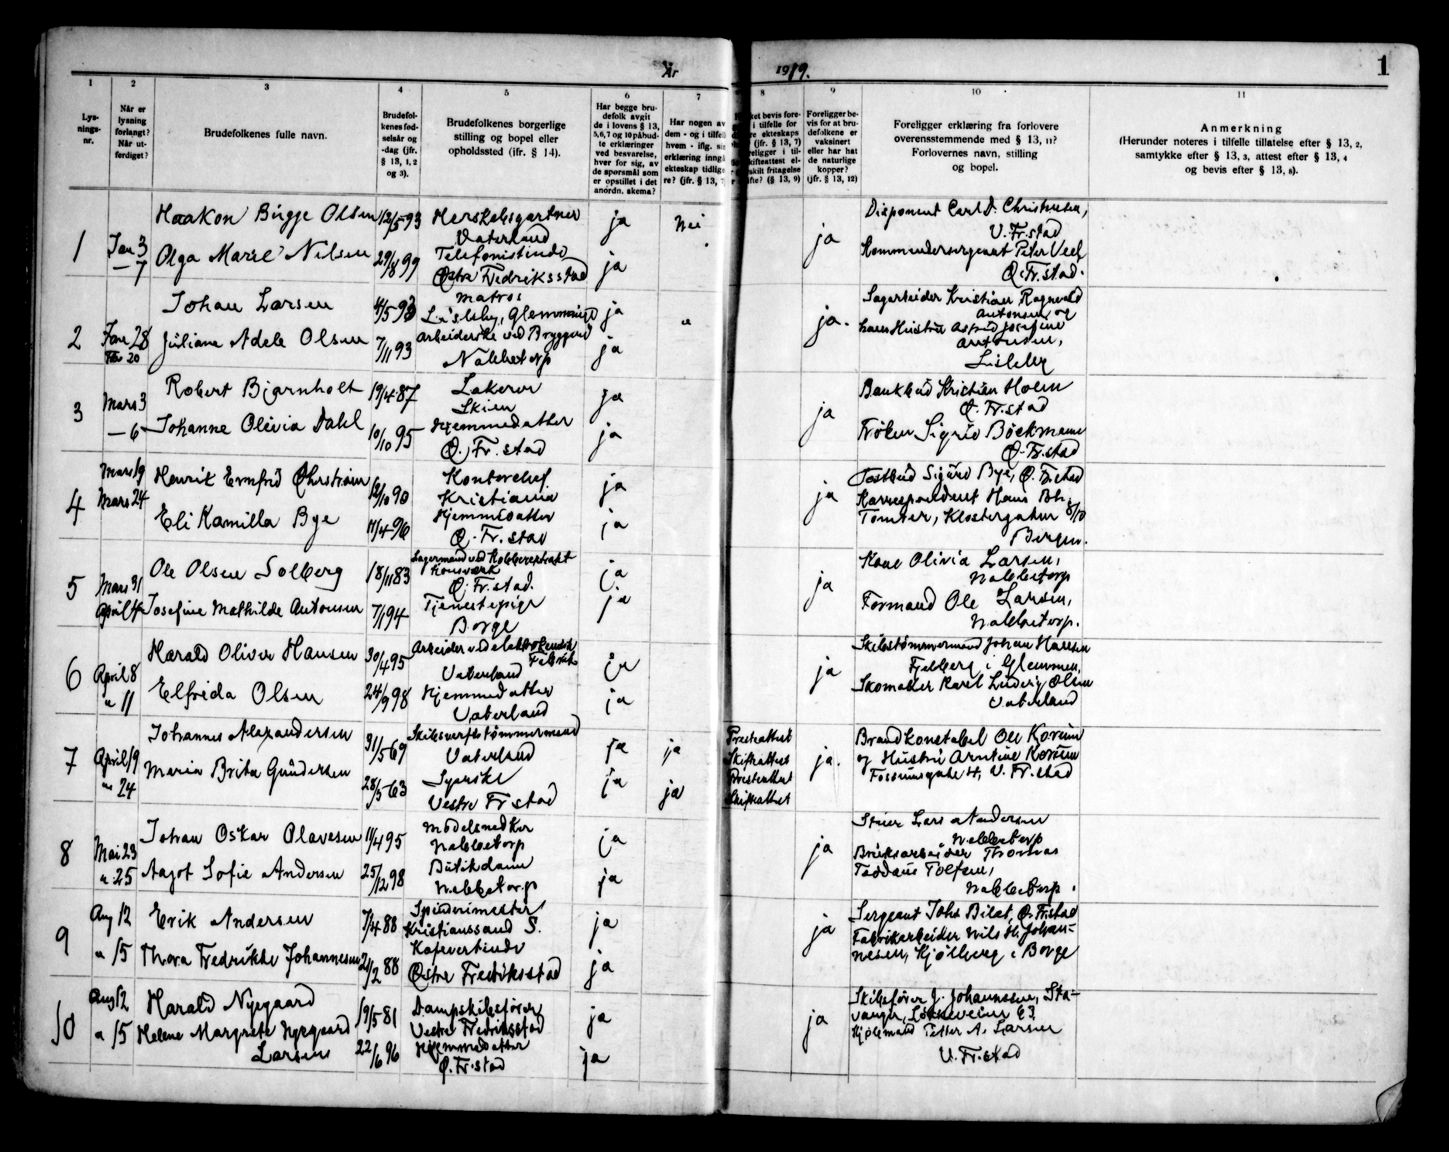 År 1919. 1
1 2 3 4 5 6 7 8 9 10 11
Lys-
nings-
nr.
Når er
lysning
forlangt?
Når ut-
ferdiget?
Brudefolkenes fulle navn.
Brudefol-
kenes fød-
selsår og
-dag (jfr.
§ 13, 1, 2
og 3).
Brudefolkenes borgerlige
stilling og bopel eller
opholdssted (ifr. § 14).
Har begge bru-
defolk avgit
de i lovens § 13,
5,6,7 og 10 påbud-
te erklæringer
ved besvarelse,
hver for sig, av
de spørsmål som
er opstillet i det
anordn. skema?
Har nogen av
dem - og i tilfell
hvem - iflg. si
erklæring inngå
ekteskap tidlige
re? (jfr. § 13, 7
ket bevis fore-
i tilfelle for
re ekteskaps
(jfr. § 13, 7)
religger i til-
kifteattest el-
skilt fritagelse
fte? (§ 13, 9)
Foreligger be-
vis for at bru-
defolkene er
vaksinert
eller har hat
de naturlige
kopper?
(jfr. § 13, 12)
Foreligger erklæring fra forlovere
overensstemmende med § 13, 11?
Forlovernes navn, stilling
og bopel.
Anmerkning
(Herunder noteres i tilfelle tillatelse efter § 13, 2,
samtykke efter § 13, 3, attest efter § 13, 4
og bevis efter § 13, 8).
1
Jan 3
— 7
Haakon Birgje Olsen 12/5 93 Herskabsgartner
Vaterland
ja nei
Olga Marie Nilsen 29/8 99 Telefonistinde
Østre Fredriksstad
ja
ja
Disponent Carl D. Christensen,
V. Fr.stad
Kommandersergeant Peter
Ø. Fr.stad.
2
Jan 28
Febr 20
Johan Larsen 4/5 93 Matros
Lisleby, Glemminge
ja "
Juliane Adele Olsen 7/11 93 Arbeiderske ved Bryggeri
Nabbetorp
ja
ja.
Sagarbeider Kristian Ragnvald
Antonsen og
hans Hustru Astrid Josefine
Antonsen,
Lisleby
3
Mars 3
— 6
Robert Bjørnholt 19/4 87 Lakerer
Skien
ja
Johanne Olivia Dahl 10/10 95 Hjemmedatter
Ø. Fr.stad
ja
ja
Bankbud Kristian Holm
Ø. Fr.stad
Frøken Sigrid Böckmann
Ø. Fr.stad
4
Mars 19
Mars 24
Henrik Ermfrid Øhrstrøm 12/10 90 Kontorchef
Kristiania
ja
Eli Kamilla Bye 17/4 96 Hjemmedatter
Ø. Fr.stad
ja
ja
Postbud Sigurd Bye, Ø. Frstad
Korrespondent Hans Bh.
Tomter, Klostergaten 8/10
Bergen.
5
Mars 31
April 4
Ole Olsen Solberg 18/11 83 Lagermand ved Kobberextrakt
tionsværk
Ø. Fr.stad.
ja
Josefine Mathilde Antonsen 7/1 94 Tjenestepige
Borge
ja
ja
Kone Olivia Larsen,
Nabbetorp
Formand Ole Larsen,
Nabbetorp.
6
April 8
" 11
Harald Oliver Hansen 30/4 95 Arbeider ved elektrokemisk
Fabrik
Vaterland
ja
Elfrida Olsen 24/9 98 Hjemmedatter
Vaterland
ja
ja
Skibstømmermand Johan Hansen
Fjelberg i Glemmen,
Skomaker Karl Ludvig Olsen
Vaterland
7
April 19
" 24
Johannes Alexandersen 31/5 69 Skibsverftstømmermand
Vaterland
ja ja
Maria Brita Gundersen 28/5 63 Syerske
Vestre Frstad
ja ja
Presteattest
Skifteattest
Presteattest
Skifteattest
ja.
Brandkonstabel Ole Korum
og Hustru Arntine Korum
Fossumsgate 4, V. Fr.stad
8
Mai 23
" 25
Johan Oskar Olavesen 11/4 95 Modelsnedker
Nabbetorp
ja
Aagot Sofie Andersen 25/12 98 Butikdame
Nabbetorp
ja
ja
Stuer Lars Andersen
Nabbetorp
Bruksarbeider Thomas
Taddæus Tolfsen,
Nabbetorp.
9
Aug 12
" 15
Erik Andersen 7/4 88 Spinderimester
Kristianssand S.
ja
Thora Fredrikke Johannesen 21/2 88 Kafevertinde
Østre Fredriksstad
ja
ja
Sergeant Johs Bilet, Ø. Frstad
Fabrikarbeider Nils H. Johan-
nesen, Kjølberg i Borge
10
Aug 12
" 15
Harald Nygaard 19/5 81 Dampskibsfører
Vestre Fredriksstad
ja
Helene Margrete Nygaard
Larsen
22/6 96 Hjemmedatter
Ø. Fr.stad
ja
ja
Skibsfører J. Johannssen, Sta-
vanger, Løkkeveien 63
Kjøbmand Petter A. Larsen
V. Fr.stad